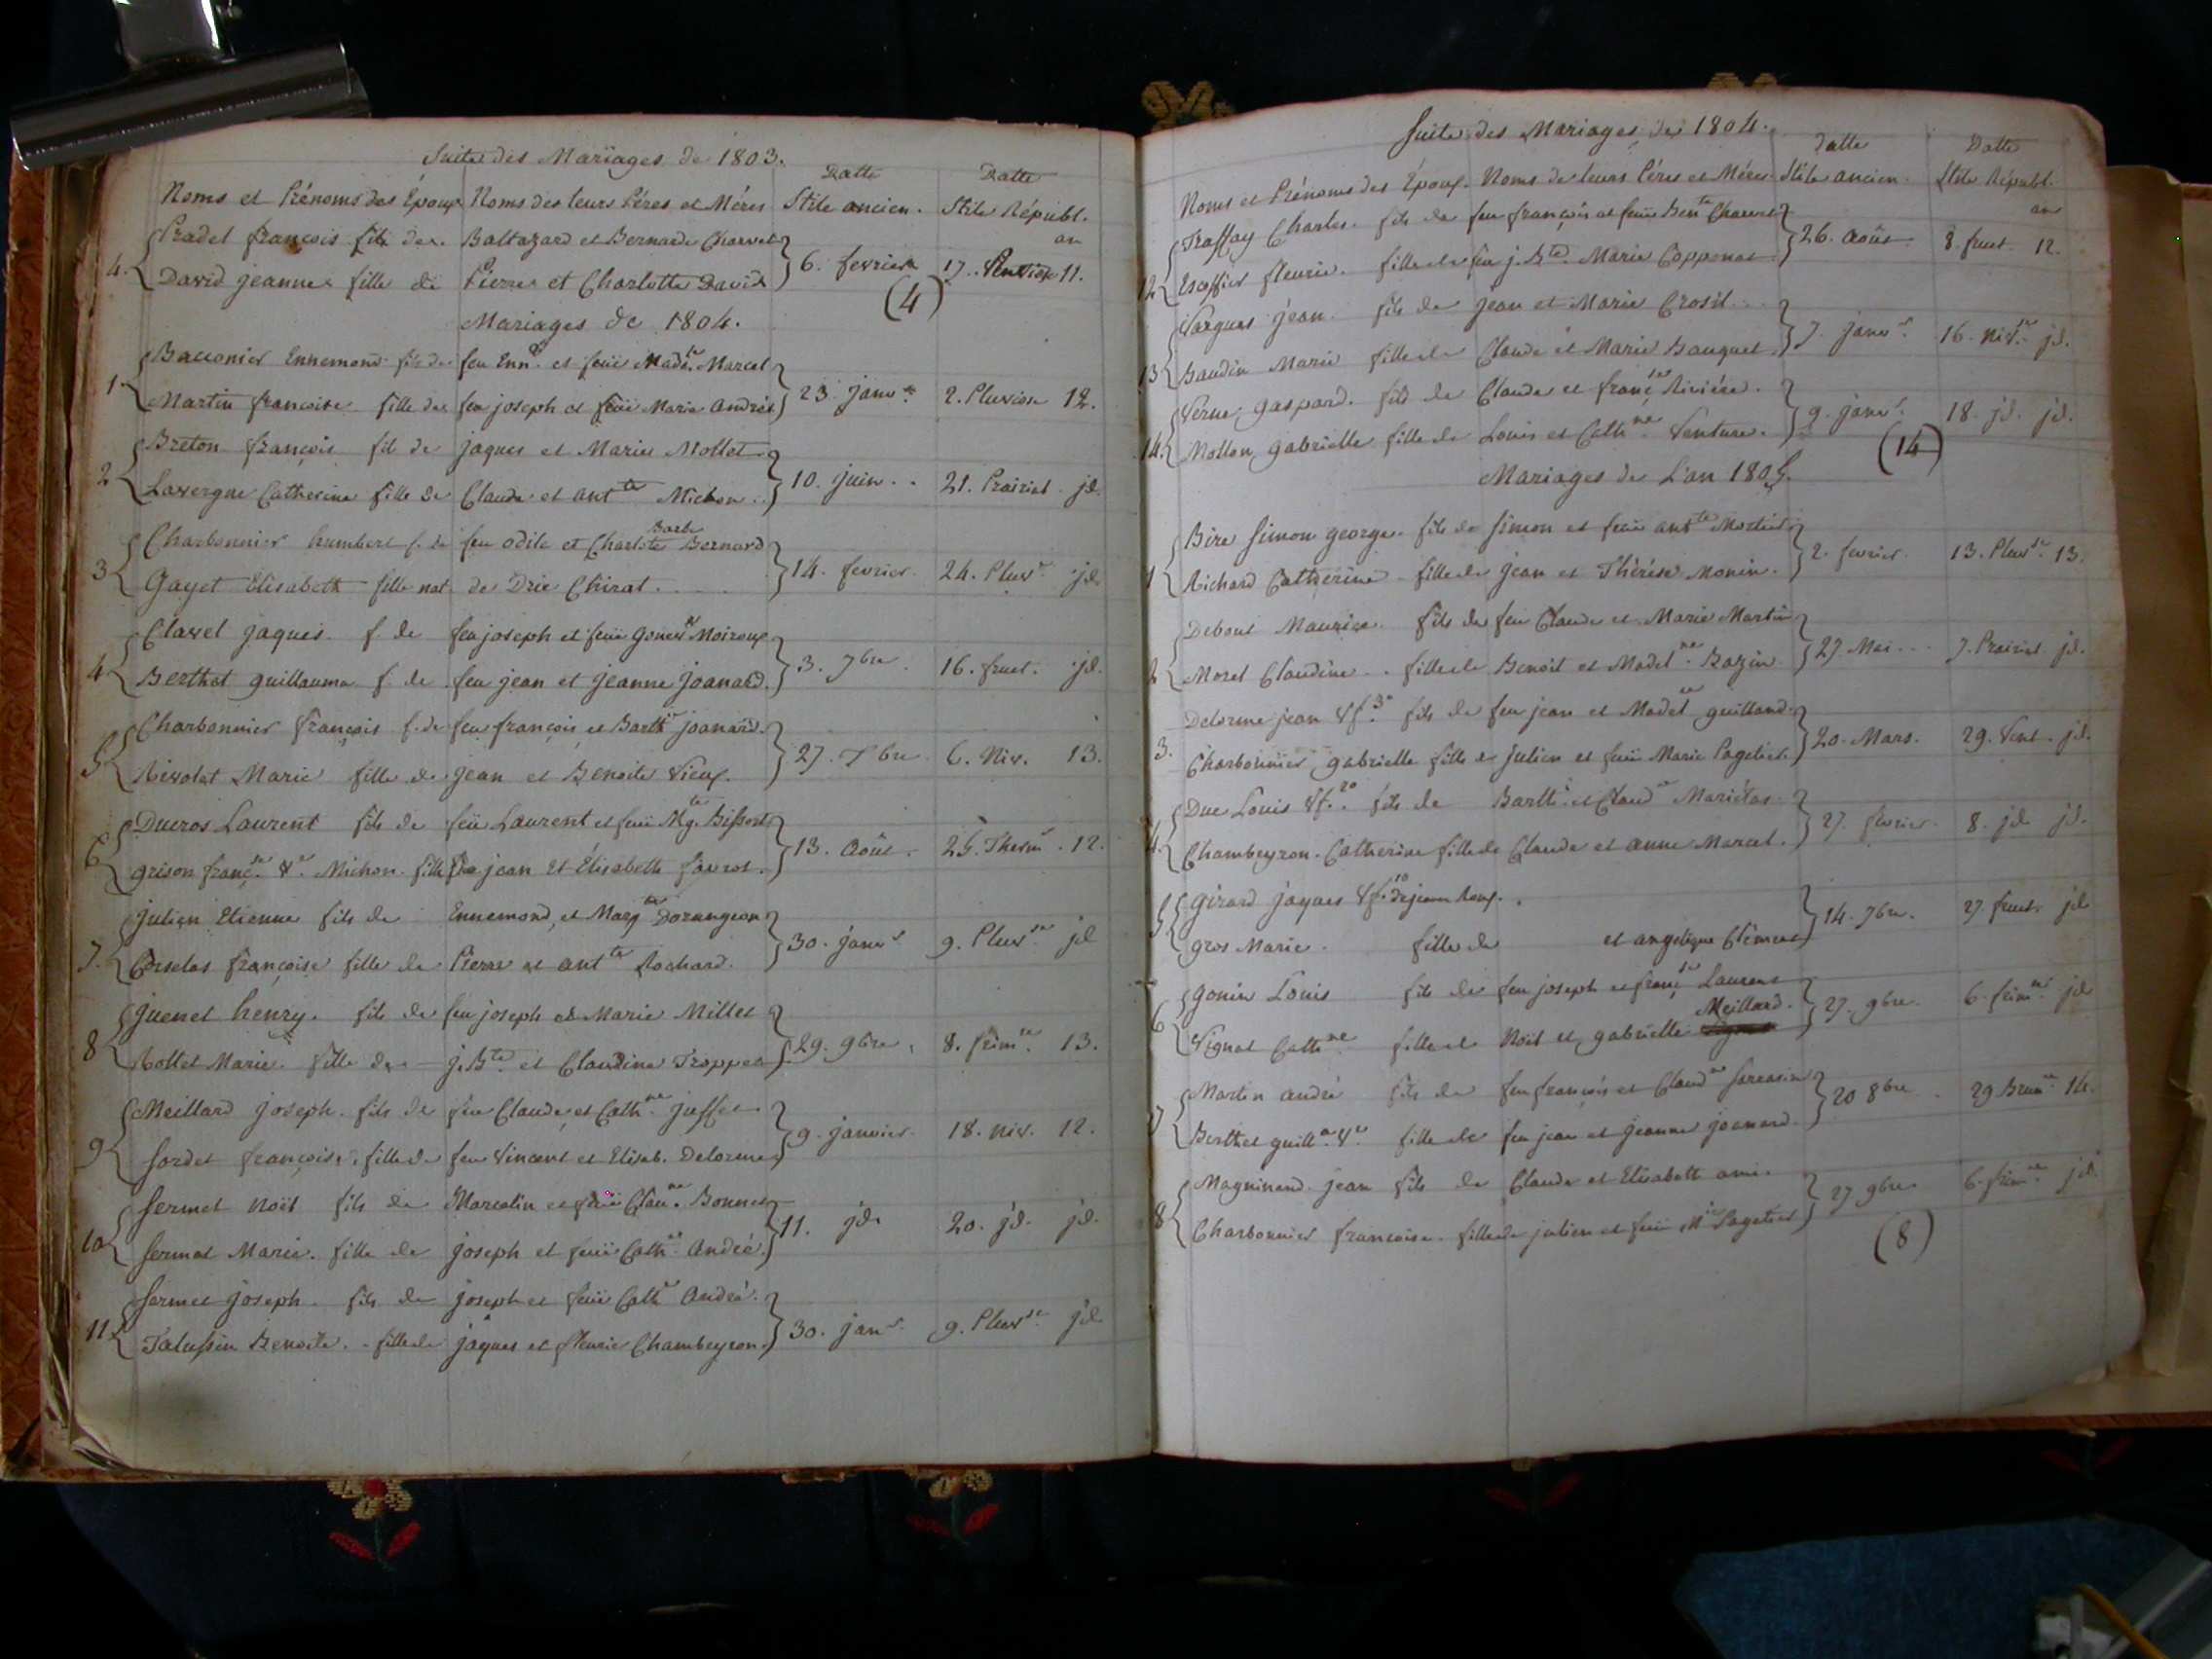 Suite des Mariages de 1803.
Noms et Prénoms des Époux Noms des leurs Péres et Méres Datte Stile ancien. Datte Stile Républ. an
4. Pradel françois fils de. Baltazard et Bernarde Charvet
David jeanne fille de Pierre et Charlotte David 6. fevrier 17. 11.
(4)
Mariages de 1804.
1 Bacconier Ennemond fils de feu Enn.d et feüe Mad.ne Marcel
Martin francoise fille de feu joseph et feüe Marie André 23. janv.r 2. Pluviose 12.
2 Breton françois fil de jaques et Marie Mollet
Lavergne Catherine fille de Claude et ant.te Michon. 10. juin. . 21. Prairial. jd.
3 Charbonnier humbert f. de feu odile et Charlote Barbe Bernard
Gayet Elisabeth fille nat. de Drie Chirat. 14. fevrier. 24. Pluv.se jd.
4 Clavel jaques. f. de feu joseph et feüe Moiroux
Berthet guillauma f. de feu jean et jeanne joanard. 3. 7bre. 16. fruct. jd.
5 Charbonnier françois f. de feu françois et Barth.ie joanard.
Rivolet Marie fille de jean et Benoite Vieux. 27. 6. Niv. 13.
6 Ducros Laurent fils de feü Laurent et feüe Mg.te Bissort
grison franc.se V.e Michon. fille de jean et Élisabeth favrot. 13. Août. 25. Therm.r 12.
7. julien Etienne fils de Ennemond, et Marg.te Dorangeon
françoise fille de Pierre et ant.te Rochard. 30. janv.r 9. Pluv.se jd
8 guenet henry. fils de feu joseph et Marie Millet
Rollet Marie. fille de j. B.te et Claudine Troppet 29. 9bre. 8. frim.re 13.
9 Meillard joseph. fils de feu Claude, et Cath.ne juffet
Sordet françoise, fille de feu Vincent et Elisab. Delorme 9. janvier. 18. niv. 12.
10 fermet Noël fils de Marcelin et feüe Clau.ne Bonnet
fermet Marie. fille de joseph et feüe Cath.ne André. 11. jd. 20. jd. jd.
11 fermet joseph. fils de joseph et feüe Cath.e André.
Talussin Benoite. fille de jaques et fleurie Chambeyron. 30. janv. 9. Pluv.se jd.
Suite des Mariages de 1804.
Noms et Prénoms des Époux. Noms de leurs Péres et Méres Datte Stile ancien. Datte Stile Républ. an
12 Traffay Charles. fils de feu françois et feüe Ben.te Charvet
Escoffier fleurie. fille de feu j. B.te Marie Copponat 26. Août. 8. fruct. 12.
13 Vargues jean. fils de jean et Marie Crosil.
Baudin Marie fille de Claude et Marie Bauquet. 7. janv.r 16. niv.se jd.
14. Verne gaspard. fils de Claude et franç.se Riviére.
Mollon gabrielle fille de Louis et Cath.ne Venture. 9. janv.r 18. jd. jd.
(14)
Mariages de L'an 1805.
1 Bire Simon george. fils de Simon et feüe ant.te Mortier
Richard Catherine. fille de jean et Thérése Monin. 2. fevrier. 13. Pluv.se 13.
2 Debout Maurice. fils de feu Claude et Marie Martin
Morel Claudine. . fille de Benoit et Madel.ne Bazin 27. Mai. . . 7. Prairial jd.
3. Delorme jean Vf. 3.o fils de feu jean et Madel.ne guilland.
Charbonnier gabrielle fille de julien et feüe Marie Pagetier. 20. Mars. 29. Vent. jd.
4. Duc Louis Vf. 2.o fils de Barth.i et Claud.e
Chambeyron. Catherine fille de Claude et anne Marcel. 27. fevrier. 8. jd. jd.
5 Girard jaques Vf. de jeanne Roux.
gros Marie. fille de et angelique Clément 14. 7bre. 27. fruct. jd
6 Gonin Louis fils de feu joseph et franç.se Laurent
Vignat Cath.ne fille de Noël et gabrielle Meillard. 27. 9bre. 6. frim.re jd
7 Martin andré fils de feu françois et Claud.ne
Berthet guill.a V.e fille de feu jean et jeanne joanard. 20 8bre. 29 Brum.re 14.
8 Magninand jean fils de Claude et Elisabeth ami.
Charbonnier francoise. fille de julien et feüe M.ie Pagetier 27 9bre 6. frim.re jd.
(8)